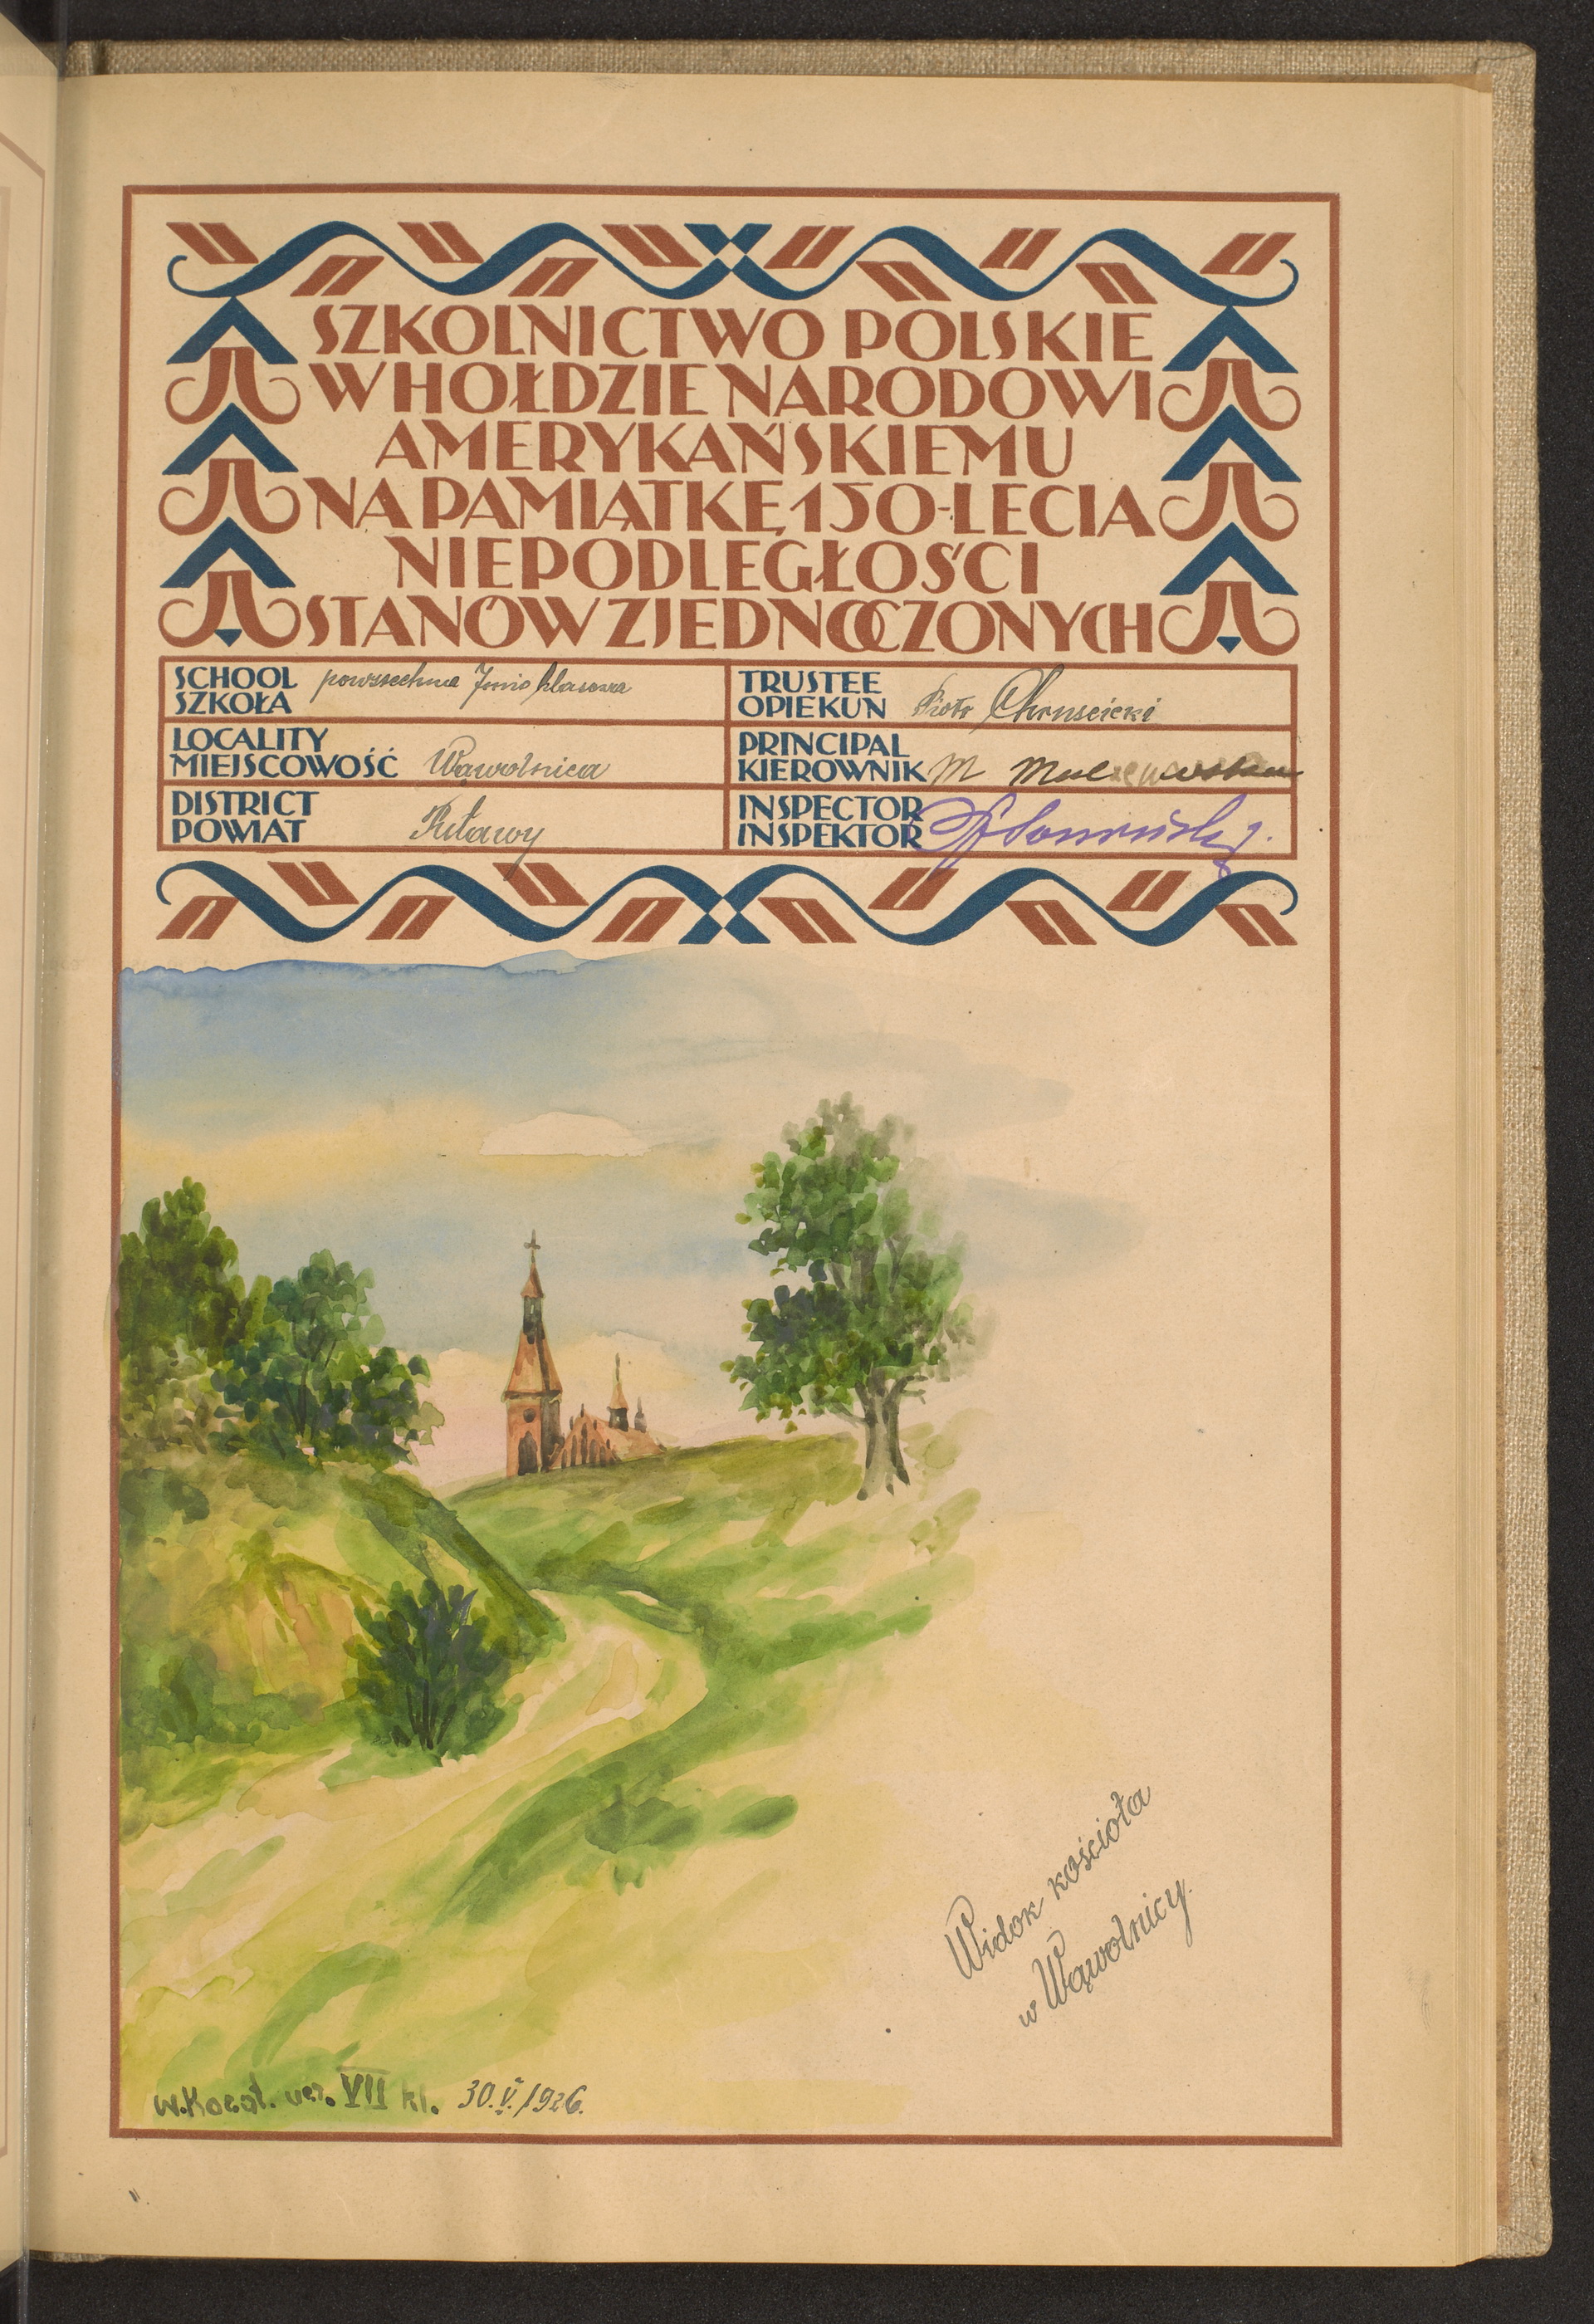 SZKOLNICTWO POLSKIE
W HOŁDZIE NARODOWI
AMERYKAŃSKIEMU
NA PAMIĄTKĘ 150-LECIA
NIEPODLEGŁOŚCI
STANÓW ZJEDNOCZONYCH
SCHOOL
SZKOŁA powszechna 7mio klasowa
LOCALITY
MIEJSCOWOŚĆ Wąwolnica
DISTRICT
POWIAT Puławy
TRUSTEE
OPIEKUN Piotr Chruścicki
PRINCIPAL
KIEROWNIK M
INSPECTOR
INSPEKTOR
Widok kościoła
w Wąwolnicy.
VII kl. 30.V.1926.